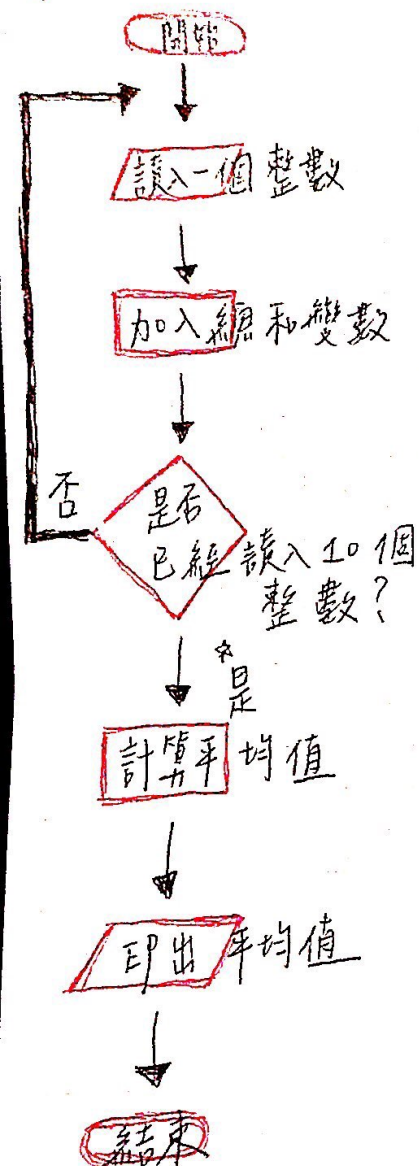 開始
讀入一個整數
加入總和變數
否
是否
已經讀入10個
整數?
☆
是
計算平均值
印出平均值
結束